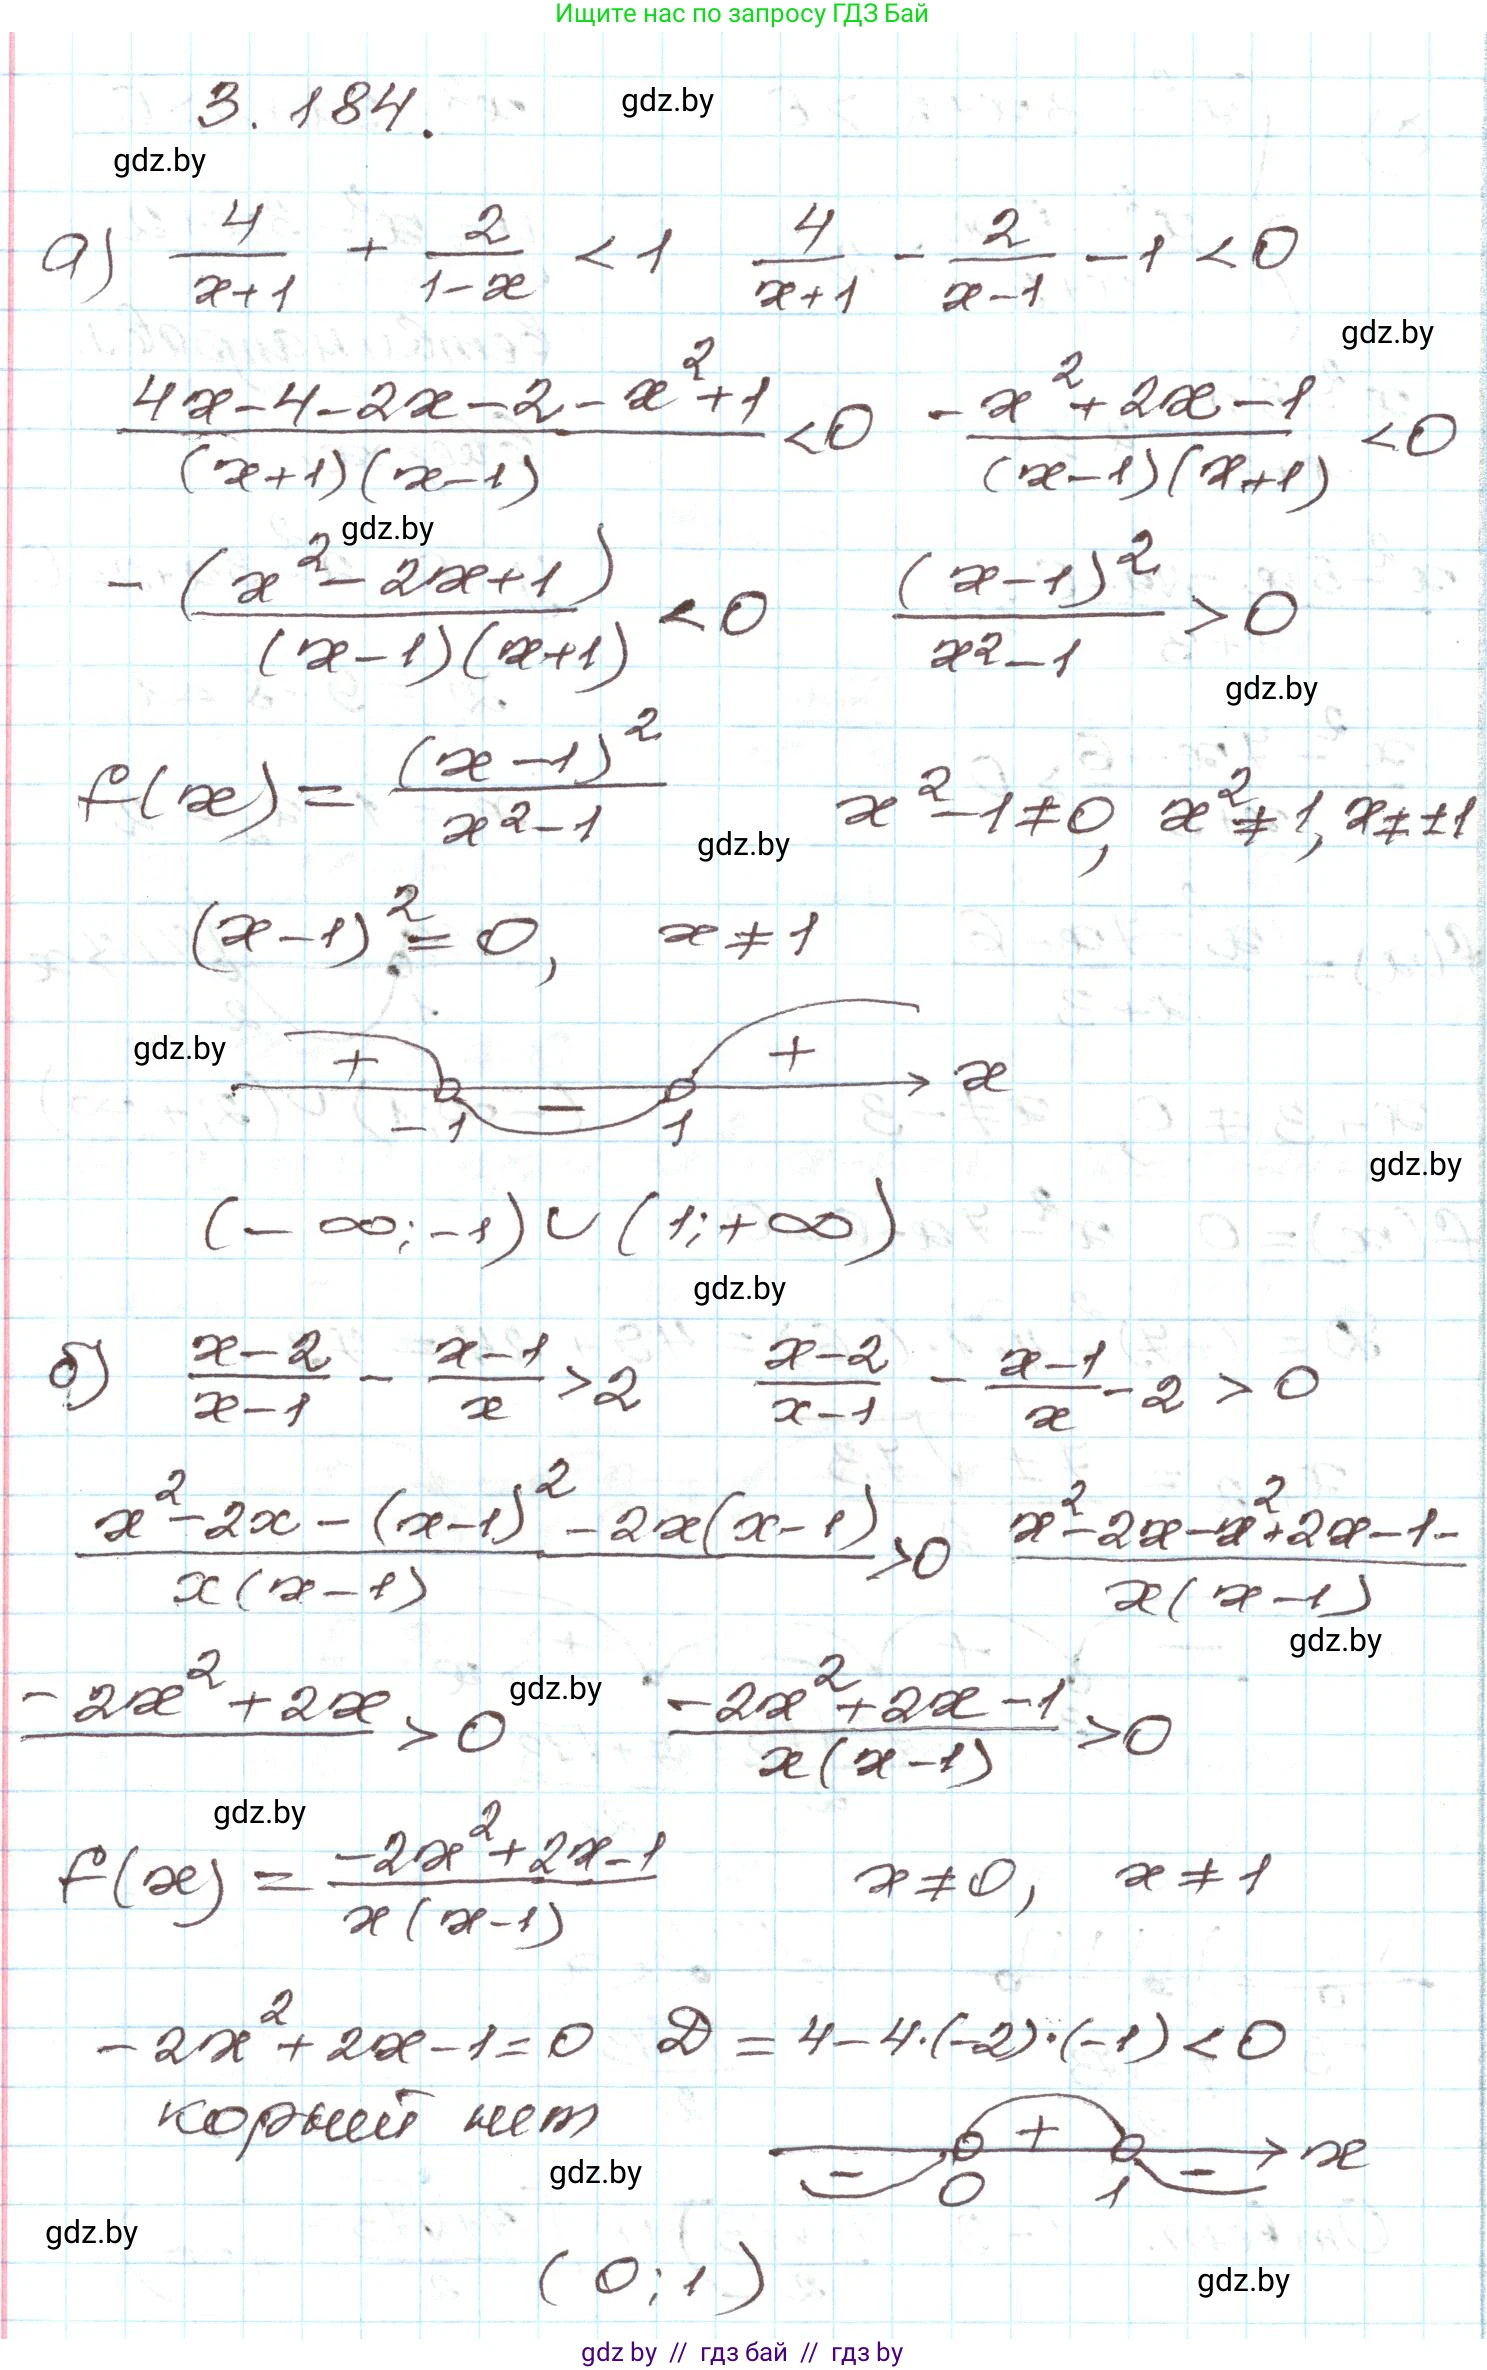 Ищите нас по запросу ГДЗ Бай
3.184.
gdz.by
gdz.by
а) 4/(x+1) + 2/(1-x) < 1   4/(x+1) - 2/(x-1) - 1 < 0
gdz.by
(4x-4-2x-2-x²+1)/((x+1)(x-1)) < 0   (-x²+2x-1)/((x-1)(x+1)) < 0
gdz.by
-(x²-2x+1)/((x-1)(x+1)) < 0   (x-1)²/(x²-1) > 0
gdz.by
f(x) = (x-1)²/(x²-1)   x²-1≠0, x²≠1, x≠±1
gdz.by
(x-1)²=0,   x≠1
gdz.by
+ - + x
-1 1
gdz.by
(-∞;-1)∪(1;+∞)
gdz.by
б) (x-2)/(x-1) - (x-1)/x > 2   (x-2)/(x-1) - (x-1)/x - 2 > 0
(x²-2x-(x-1)²-2x(x-1))/(x(x-1)) > 0   (x²-2x-x²+2x-1-)/(x(x-1))
gdz.by
-2x²+2x > 0   (-2x²+2x-1)/(x(x-1)) > 0
gdz.by
gdz.by
f(x) = (-2x²+2x-1)/(x(x-1))   x≠0,   x≠1
-2x²+2x-1=0   D = 4-4·(-2)·(-1) < 0
корний нет
- + - x
0 1
gdz.by
gdz.by
(0;1)
gdz.by
gdz by // гдз бай // гдз by